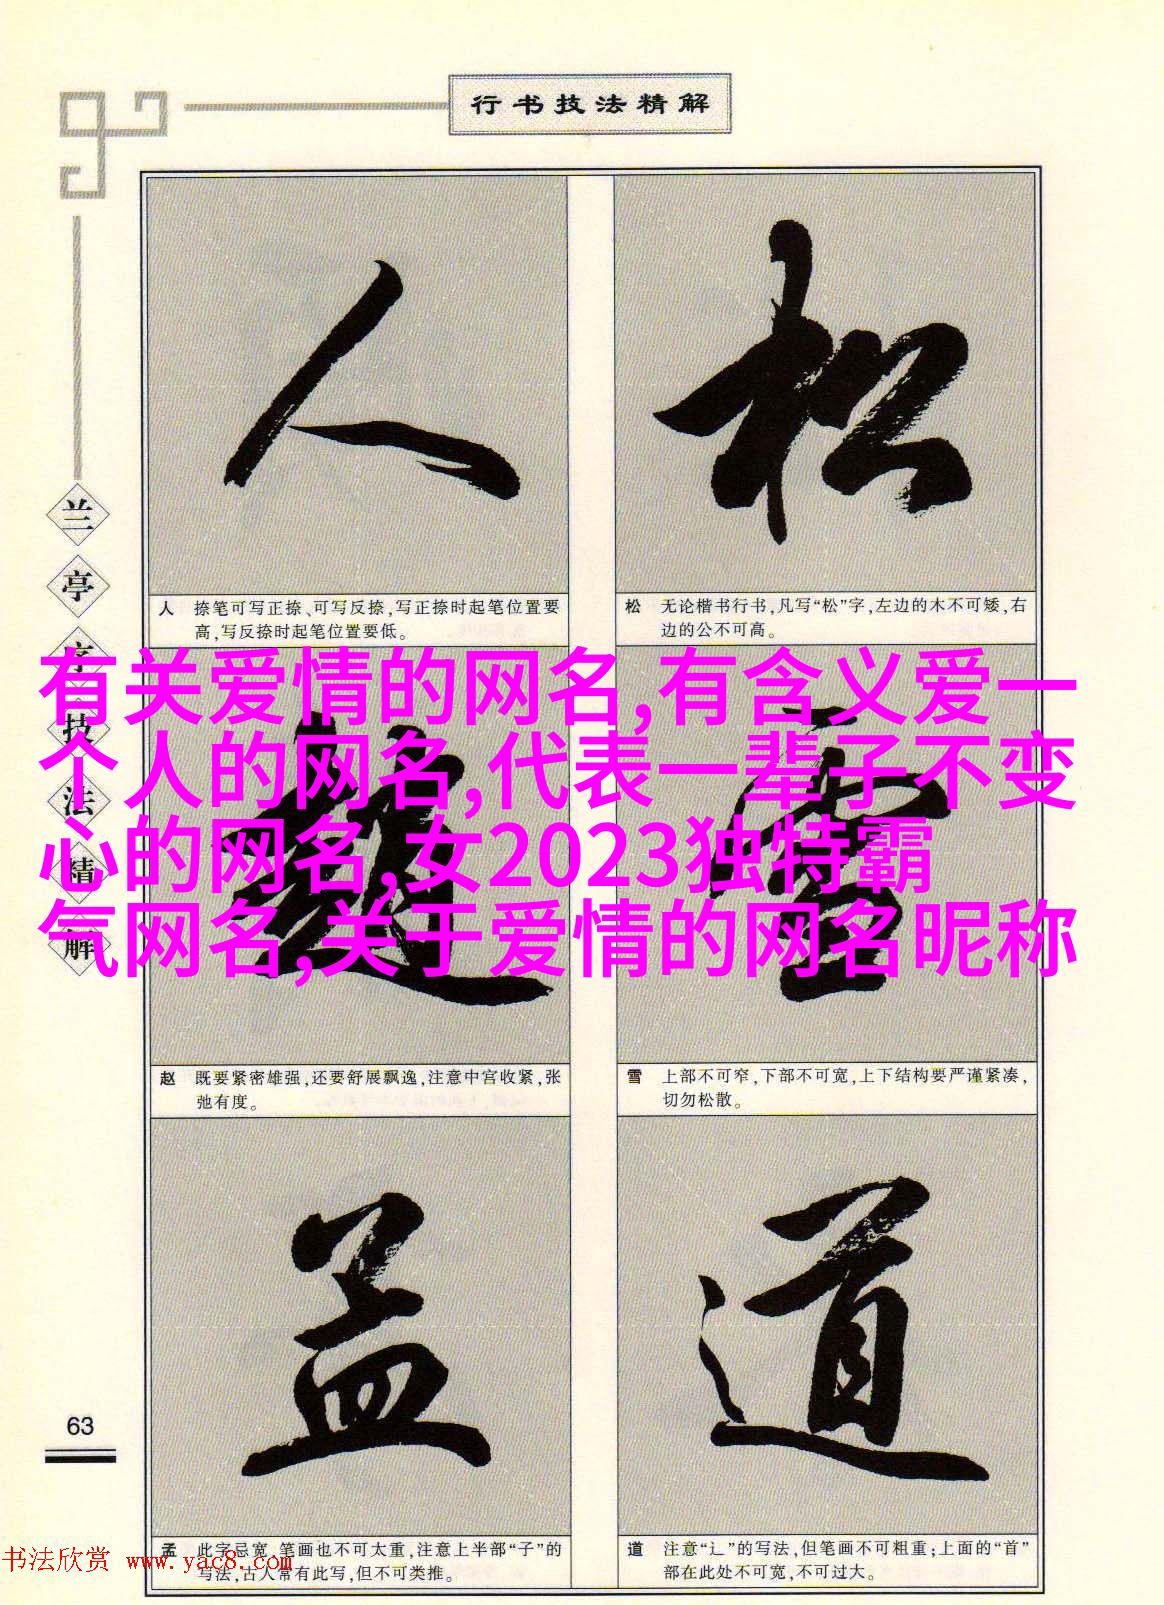 行书技法精解
人 松
人 捺笔可写正捺、可写反捺,写正捺时起笔位置要
高,写反捺时起笔位置要低。
松 无论楷书行书,凡写“松”字,左边的木不可矮,右
边的公不可高。
兰亭序技法精解
有关爱情的网名,有含义爱一
个人的网名,代表一辈子不变
心的网名,女2023独特霸
气网名,关于爱情的网名昵称
赵 雪
赵 既要紧密雄强,还要舒展飘逸,注意中宫收紧,张
弛有度。
雪 上部不可窄,下部不可宽,上下结构要严谨紧凑,
切勿松散。
孟 道
孟 此字忌宽,笔画也不可太重,注意上半部“子”的
写法,古人常有此写,但不可类推。
道 注意“辶”的写法,但笔画不可粗重;上面的“首”
部在此处不可宽,不可过大。
63
书法欣赏 www.yac8.com